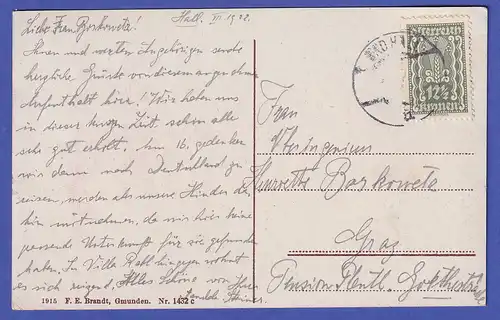 Liebe Frau Borkowetz! Hall. III. 1922.
Ihnen und werten Angehörigen sende
herzliche Grüsse von diesem angenehmen
Aufenthalt hier! Wir haben uns
in dieser kurzen Zeit schon alle
sehr gut erholt. Am 16. gedenken
wir dann nach Deutschland zu
reisen, werden als unsere Kinder da
hin mitnehmen, da wir hier keine
passende Unterkunft für sie gefunden
haben. In Villa Rabl hingegen wohnt
es sich reizend. Alles Schöne von Ihrer
1915 F. E. Brandt, Gmunden. Nr. 1432 c
BAD HALL
Österreich
12½
Kronen
Frau
Henriette Borkowetz
Graz
Pension